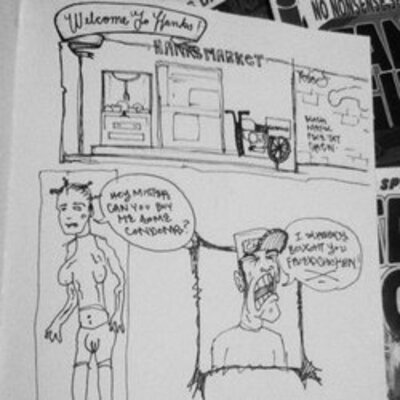 NO NONSENSE
Welcome To Hanks!
HANKS MARKET
HEY MISTER
CAN YOU BUY
ME SOME
CONDOMS?
I ALREADY
BOUGHT YOU
FRIED CHICKEN!
SP